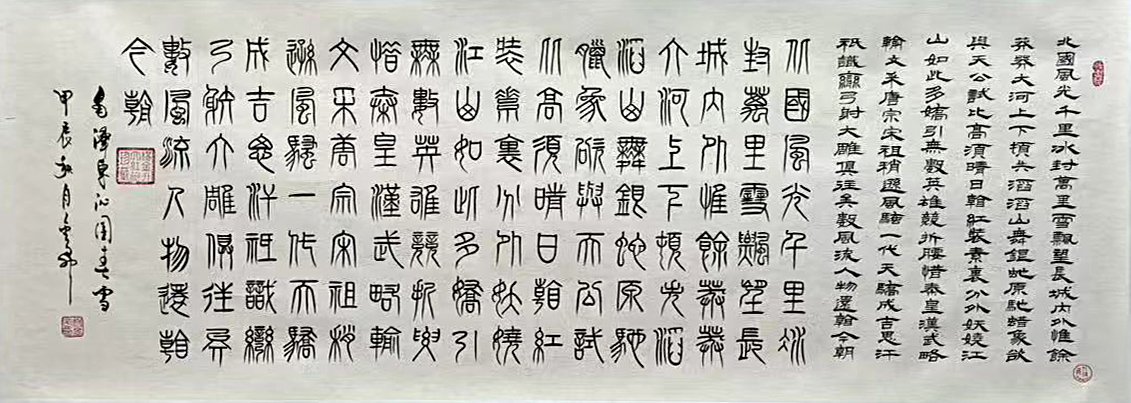 北國風光千里冰封萬里雪飄望長城內外惟餘
莽莽大河上下頓失滔滔山舞銀蛇原馳蜡象欲
與天公試比高須晴日看紅裝素裹分外妖嬈江
山如此多嬌引無數英雄競折腰惜秦皇漢武略
輸文采唐宗宋祖稍遜風騷一代天驕成吉思汗
祇識彎弓射大雕俱往矣數風流人物還看今朝
北國風光千里冰
封萬里雪飄望長
城內外惟餘莽莽
大河上下頓失滔
滔山舞銀蛇原馳
蠟象欲與天公試
比高須晴日看紅
裝素裹分外妖嬈
江山如此多嬌引
無數英雄競折腰
惜秦皇漢武略輸
文采唐宗宋祖稍
遜風騷一代天驕
成吉思汗祇識彎
弓射大雕俱往矣
數風流人物還看
今朝
毛澤東沁園春雪
甲辰秋月